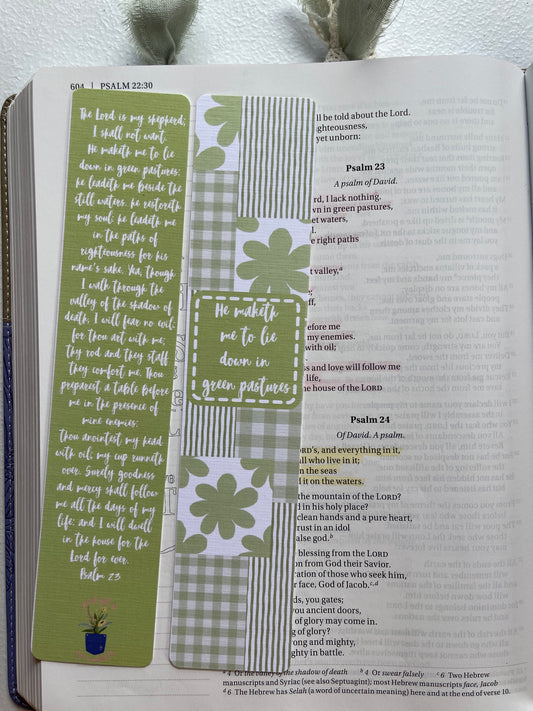 604 | PSALM 22:30
The Lord is my shepherd;
I shall not want.
He maketh me to lie
down in green pastures:
he leadeth me beside the
still waters. he restoreth
my soul: he leadeth me
in the paths of
righteousness for his
name's sake. Yea, though
I walk through the
valley of the shadow of
death, I will fear no evil:
for thou art with me;
thy rod and they staff
they comfort me. Thou
preparest a table before
me in the presence of
mine enemies:
Thou anointest my head
with oil; my cup runneth
over. Surely goodness
and mercy shall follow
me all the days of my
life: and I will dwell
in the house for the
Lord for ever.
Psalm 23
He maketh
me to lie
down in
green pastures
ll be told about the Lord.
ighteousness,
yet unborn:
Psalm 23
A psalm of David.
rd, I lack nothing.
wn in green pastures,
et waters,
l.
e right paths
t valley,a
e;
ff,
efore me
my enemies.
with oil;
ss and love will follow me
life,
he house of the LORD
Psalm 24
Of David. A psalm.
ORD's, and everything in it,
all who live in it;
n the seas
d it on the waters.
the mountain of the LORD?
d in his holy place?
clean hands and a pure heart,
trust in an idol
alse god.b
blessing from the LORD
on from God their Savior.
ration of those who seek him,
r face, God of Jacob.c,d
ds, you gates;
you ancient doors,
of glory may come in.
g of glory?
rong and mighty,
ghty in battle.
a 4 Or the valley of the shadow of death b 4 Or swear falsely c 6 Two Hebrew
manuscripts and Syriac (see also Septuagint); most Hebrew manuscripts face, Jacob
d 6 The Hebrew has Selah (a word of uncertain meaning) here and at the end of verse 10.